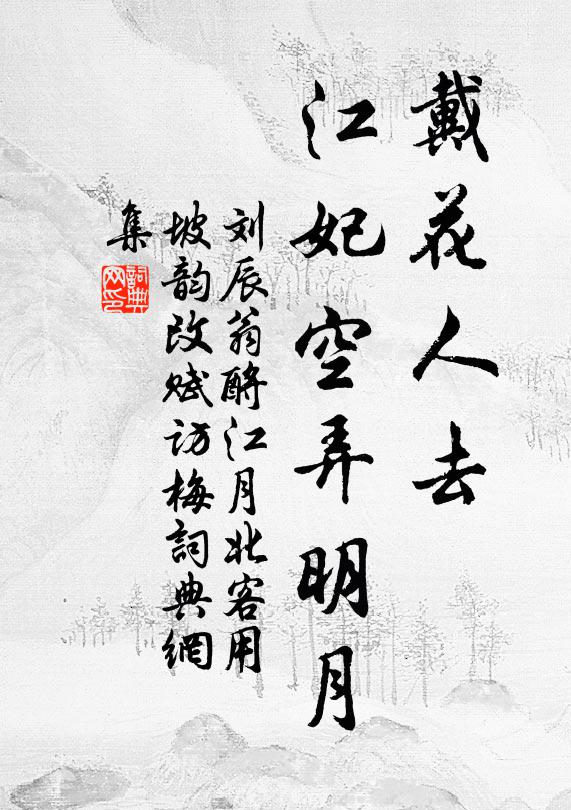 戴花人去
江妃空弄明月
刘辰翁酹江月北客用
坡韵改赋访梅詞典網
集
詞典網印